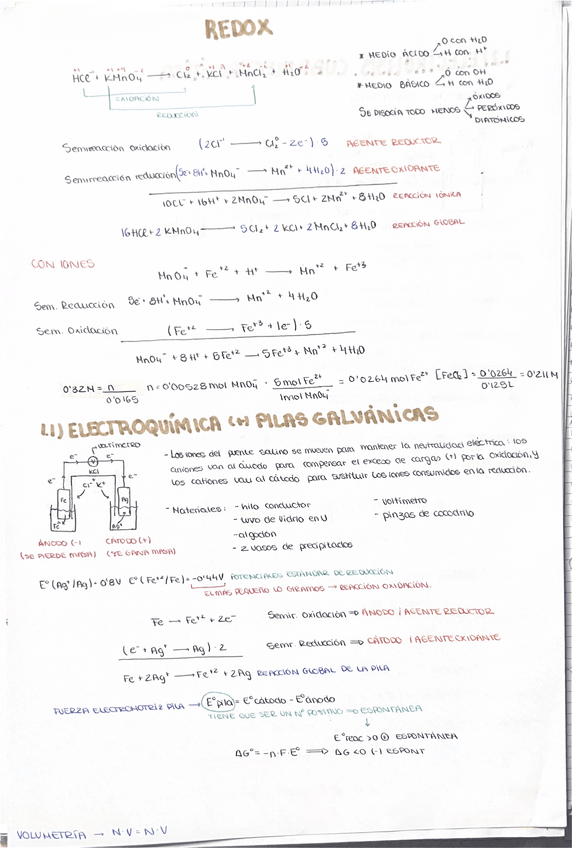 REDOX
* MEDIO ÁCIDO O con H₂O
H con H⁺
* MEDIO BÁSICO O con OH
H con H₂O
SE DISOCIA TODO MENOS ÓXIDOS
PERÓXIDOS
DIATÓMICOS
HCl + KMnO₄ → Cl₂ + KCl + MnCl₂ + H₂O
OXIDACIÓN
REDUCCIÓN
Semirreacción oxidación (2Cl⁻ → Cl₂⁰ - 2e⁻)·5 AGENTE REDUCTOR
Semirreacción reducción (5e⁻ + 8H⁺ + MnO₄⁻ → Mn²⁺ + 4H₂O)·2 AGENTE OXIDANTE
10Cl⁻ + 16H⁺ + 2MnO₄⁻ → 5Cl + 2Mn²⁺ + 8H₂O REACCIÓN IÓNICA
16HCl + 2KMnO₄ → 5Cl₂ + 2KCl + 2MnCl₂ + 8H₂O REACCIÓN GLOBAL
CON IONES
MnO₄⁻ + Fe⁺² + H⁺ → Mn⁺² + Fe⁺³
Sem. Reducción 5e⁻ + 8H⁺ + MnO₄⁻ → Mn⁺² + 4H₂O
Sem. Oxidación (Fe⁺² → Fe⁺³ + 1e⁻)·5
MnO₄⁻ + 8H⁺ + 5Fe⁺² → 5Fe⁺³ + Mn⁺² + 4H₂O
0'32N = n / 0'0165 n = 0'00528 mol MnO₄⁻ · 5mol Fe²⁺ / 1mol MnO₄⁻ = 0'0264 mol Fe²⁺ [FeCl₂] = 0'0264 / 0'125L = 0'211M
1.1) ELECTROQUÍMICA (+) PILAS GALVÁNICAS
voltímetro
e⁻ V e⁻
KCl
Cl⁻ K⁺
e⁻ e⁻
Fe Ag
Fe⁺² Ag⁺
ÁNODO (-) CÁTODO (+)
(SE PIERDE MASA) (SE GANA MASA)
- Los iones del puente salino se mueven para mantener la neutralidad eléctrica: los
aniones van al ánodo para compensar el exceso de cargas (+) por la oxidación, y
los cationes van al cátodo para sustituir los iones consumidos en la reducción.
- Materiales: - hilo conductor
- tuvo de vidrio en U
- algodón
- 2 vasos de precipitados
- voltímetro
- pinzas de cocodrilo
E°(Ag⁺/Ag) = 0'8V E°(Fe⁺²/Fe) = -0'44V POTENCIALES ESTÁNDAR DE REDUCCIÓN
EL MAS PEQUEÑO LO GIRAMOS → REACCIÓN OXIDACIÓN.
Fe → Fe⁺² + 2e⁻ Semir. Oxidación ⇒ ÁNODO / AGENTE REDUCTOR
(e⁻ + Ag⁺ → Ag)·2 Semir. Reducción ⇒ CÁTODO / AGENTE OXIDANTE
Fe + 2Ag⁺ → Fe⁺² + 2Ag REACCIÓN GLOBAL DE LA PILA
FUERZA ELECTROMOTRIZ PILA → E°pila = E°cátodo - E°ánodo
TIENE QUE SER UN Nº POSITIVO ⇒ ESPONTÁNEA
↓
E°reac > 0 ⊕ ESPONTÁNEA
ΔG° = -n·F·E° ⇒ ΔG < 0 (-) ESPONT
VOLUMETRÍA → N·V = N·V